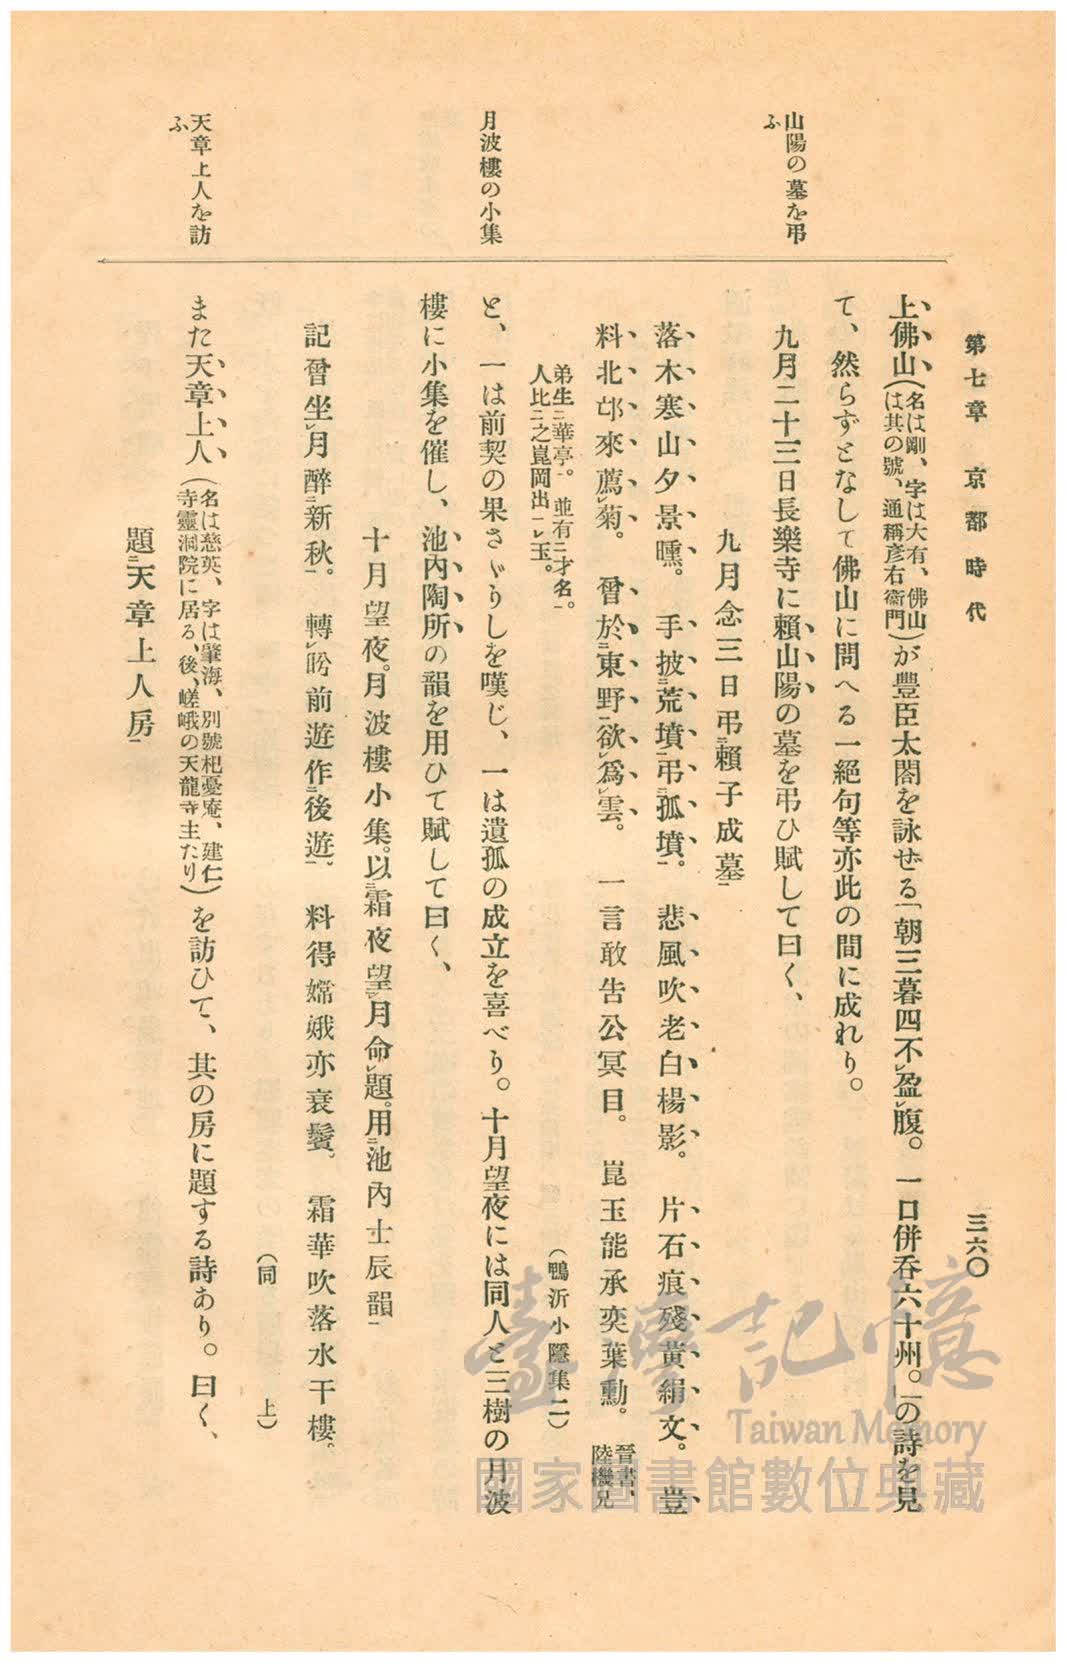 第七章 京都時代
三六〇
山陽の墓を弔
ふ
月波樓の小集
天章上人を訪
ふ
上佛山(名は剛、字は大有、佛山
は其の號、通稱彦右衞門)が豐臣太閤を詠せる「朝三暮四不レ盈レ腹。一口併呑六十州。」の詩を見
て、然らずとなして佛山に問へる一絕句等亦此の間に成れり。
九月二十三日長樂寺に賴山陽の墓を弔ひ賦して曰く、
九月念三日弔二賴子成墓一
落木寒山夕景曛。手披二荒墳一弔二孤墳一。悲風吹老白楊影。片石痕殘黃絹文。豈
料北邙來薦レ菊。曾於二東野一欲レ爲レ雲。一言敢告公冥目。崑玉能承奕葉勳。
晉書、
陸機兄
弟生二華亭一。並有二才名一。
人比二之崑岡出一レ玉。
(鴨沂小隱集二)
と、一は前契の果さゞりしを嘆じ、一は遺孤の成立を喜べり。十月望夜には同人と三樹の月波
樓に小集を催し、池內陶所の韻を用ひて賦して曰く、
十月望夜。月波樓小集。以二霜夜望レ月命一レ題。用二池內士辰韻一
記曾坐レ月醉二新秋一。轉レ盻前遊作二後遊一。料得嫦娥亦衰鬢。霜華吹落水干樓。
(同 上)
また天章上人(名は慈英、字は肇海、別號杞憂庵、建仁
寺靈洞院に居る、後、嵯峨の天龍寺主たり)を訪ひて、其の房に題する詩あり。曰く、
題二天章上人房一
臺灣記憶
Taiwan Memory
國家圖書館數位典藏